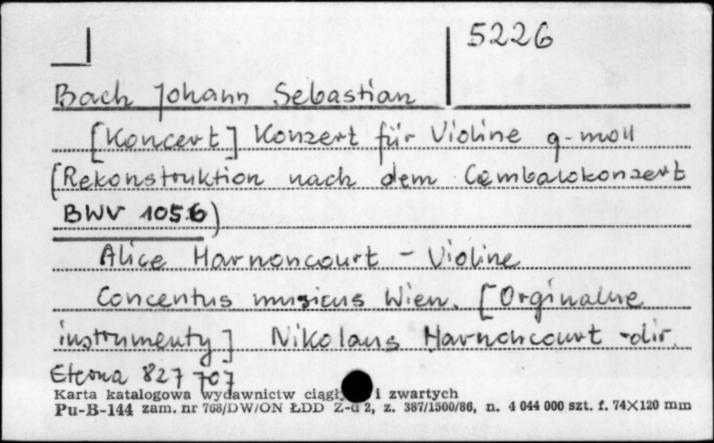 5226
Bach Johann Sebastian
[Koncert] Konzert für Violine g-moll
[Rekonstruktion nach dem Cembalokonzert
BWV 1056)
Alice Harnoncourt - Violine
Concentus musicus Wien. [Orginalne
instrumenty] Nikolaus Harnoncourt -dir.
Eterna 827 707
Karta katalogowa wydawnictw ciągł i zwartych
Pu-B-144 zam. nr 768/DW/ON ŁDD Z-d 2, z. 387/1500/86, n. 4 044 000 szt. f. 74×120 mm